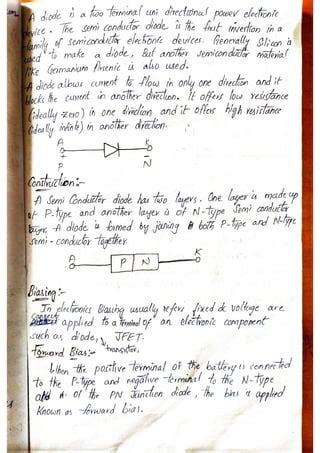 A diode is a two terminal uni directional power electronic
device. The semi conductor diode is the first invention in a
family of semiconductor electronic devices. Generally Silicon is
used to make a diode, But another semiconductor material
like Germanium Arsenic is also used.
A diode allows current to flow in only one direction and it
blocks the current in another direction. It offers low resistance
(ideally zero) in one direction and it offers high resistance
(ideally infinite) in another direction.
A K
P N
Construction:-
A Semi Conductor diode has two layers. One layer is made up
of P-type and another layer is of N-type Semi conductor
layer. A diode is formed by joining both P-type and N-type
semi-conductor together.
A K
P N
Biasing:-
In electronics Biasing usually refers fixed dc voltage are
applied to a terminal of an electronic component
such as diode, transistor, JFET.
Forward Bias:-
When the positive terminal of the battery is connected
to the P-type and negative terminal to the N-type
of the PN Junction diode, the bias is applied
known as forward bias.